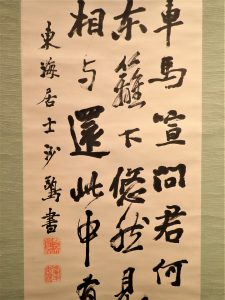 車馬喧問君何
东籬下悠然見
相与還此中有
東海居士書